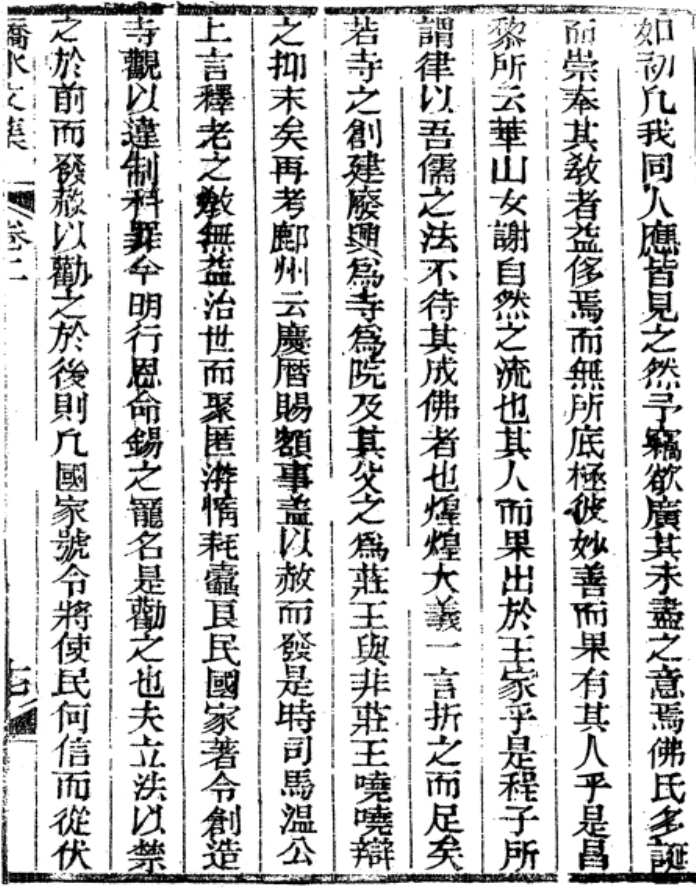 如初凡我同人應皆見之然予竊欲廣其未盡之意焉佛氏多誕
而崇奉其敎者益侈焉而無所底極彼妙善而果有其人乎是昌
黎所云華山女謝自然之流也其人而果出於王家乎是程子所
謂律以吾儒之法不待其成佛者也煌煌大義一言折之而足矣
若寺之創建廢興爲寺爲院及其父之爲莊王與非莊王嘵嘵辯
之抑末矣再考鄜州云慶曆賜額事蓋以赦而發是時司馬溫公
上言釋老之敎無益治世而聚匿游惰耗蠹良民國家著令創造
寺觀以違制科罪今明行恩命錫之寵名是勸之也夫立法以禁
之於前而發赦以勸之於後則凡國家號令將使民何信而從伏
喬水文集 卷二 七